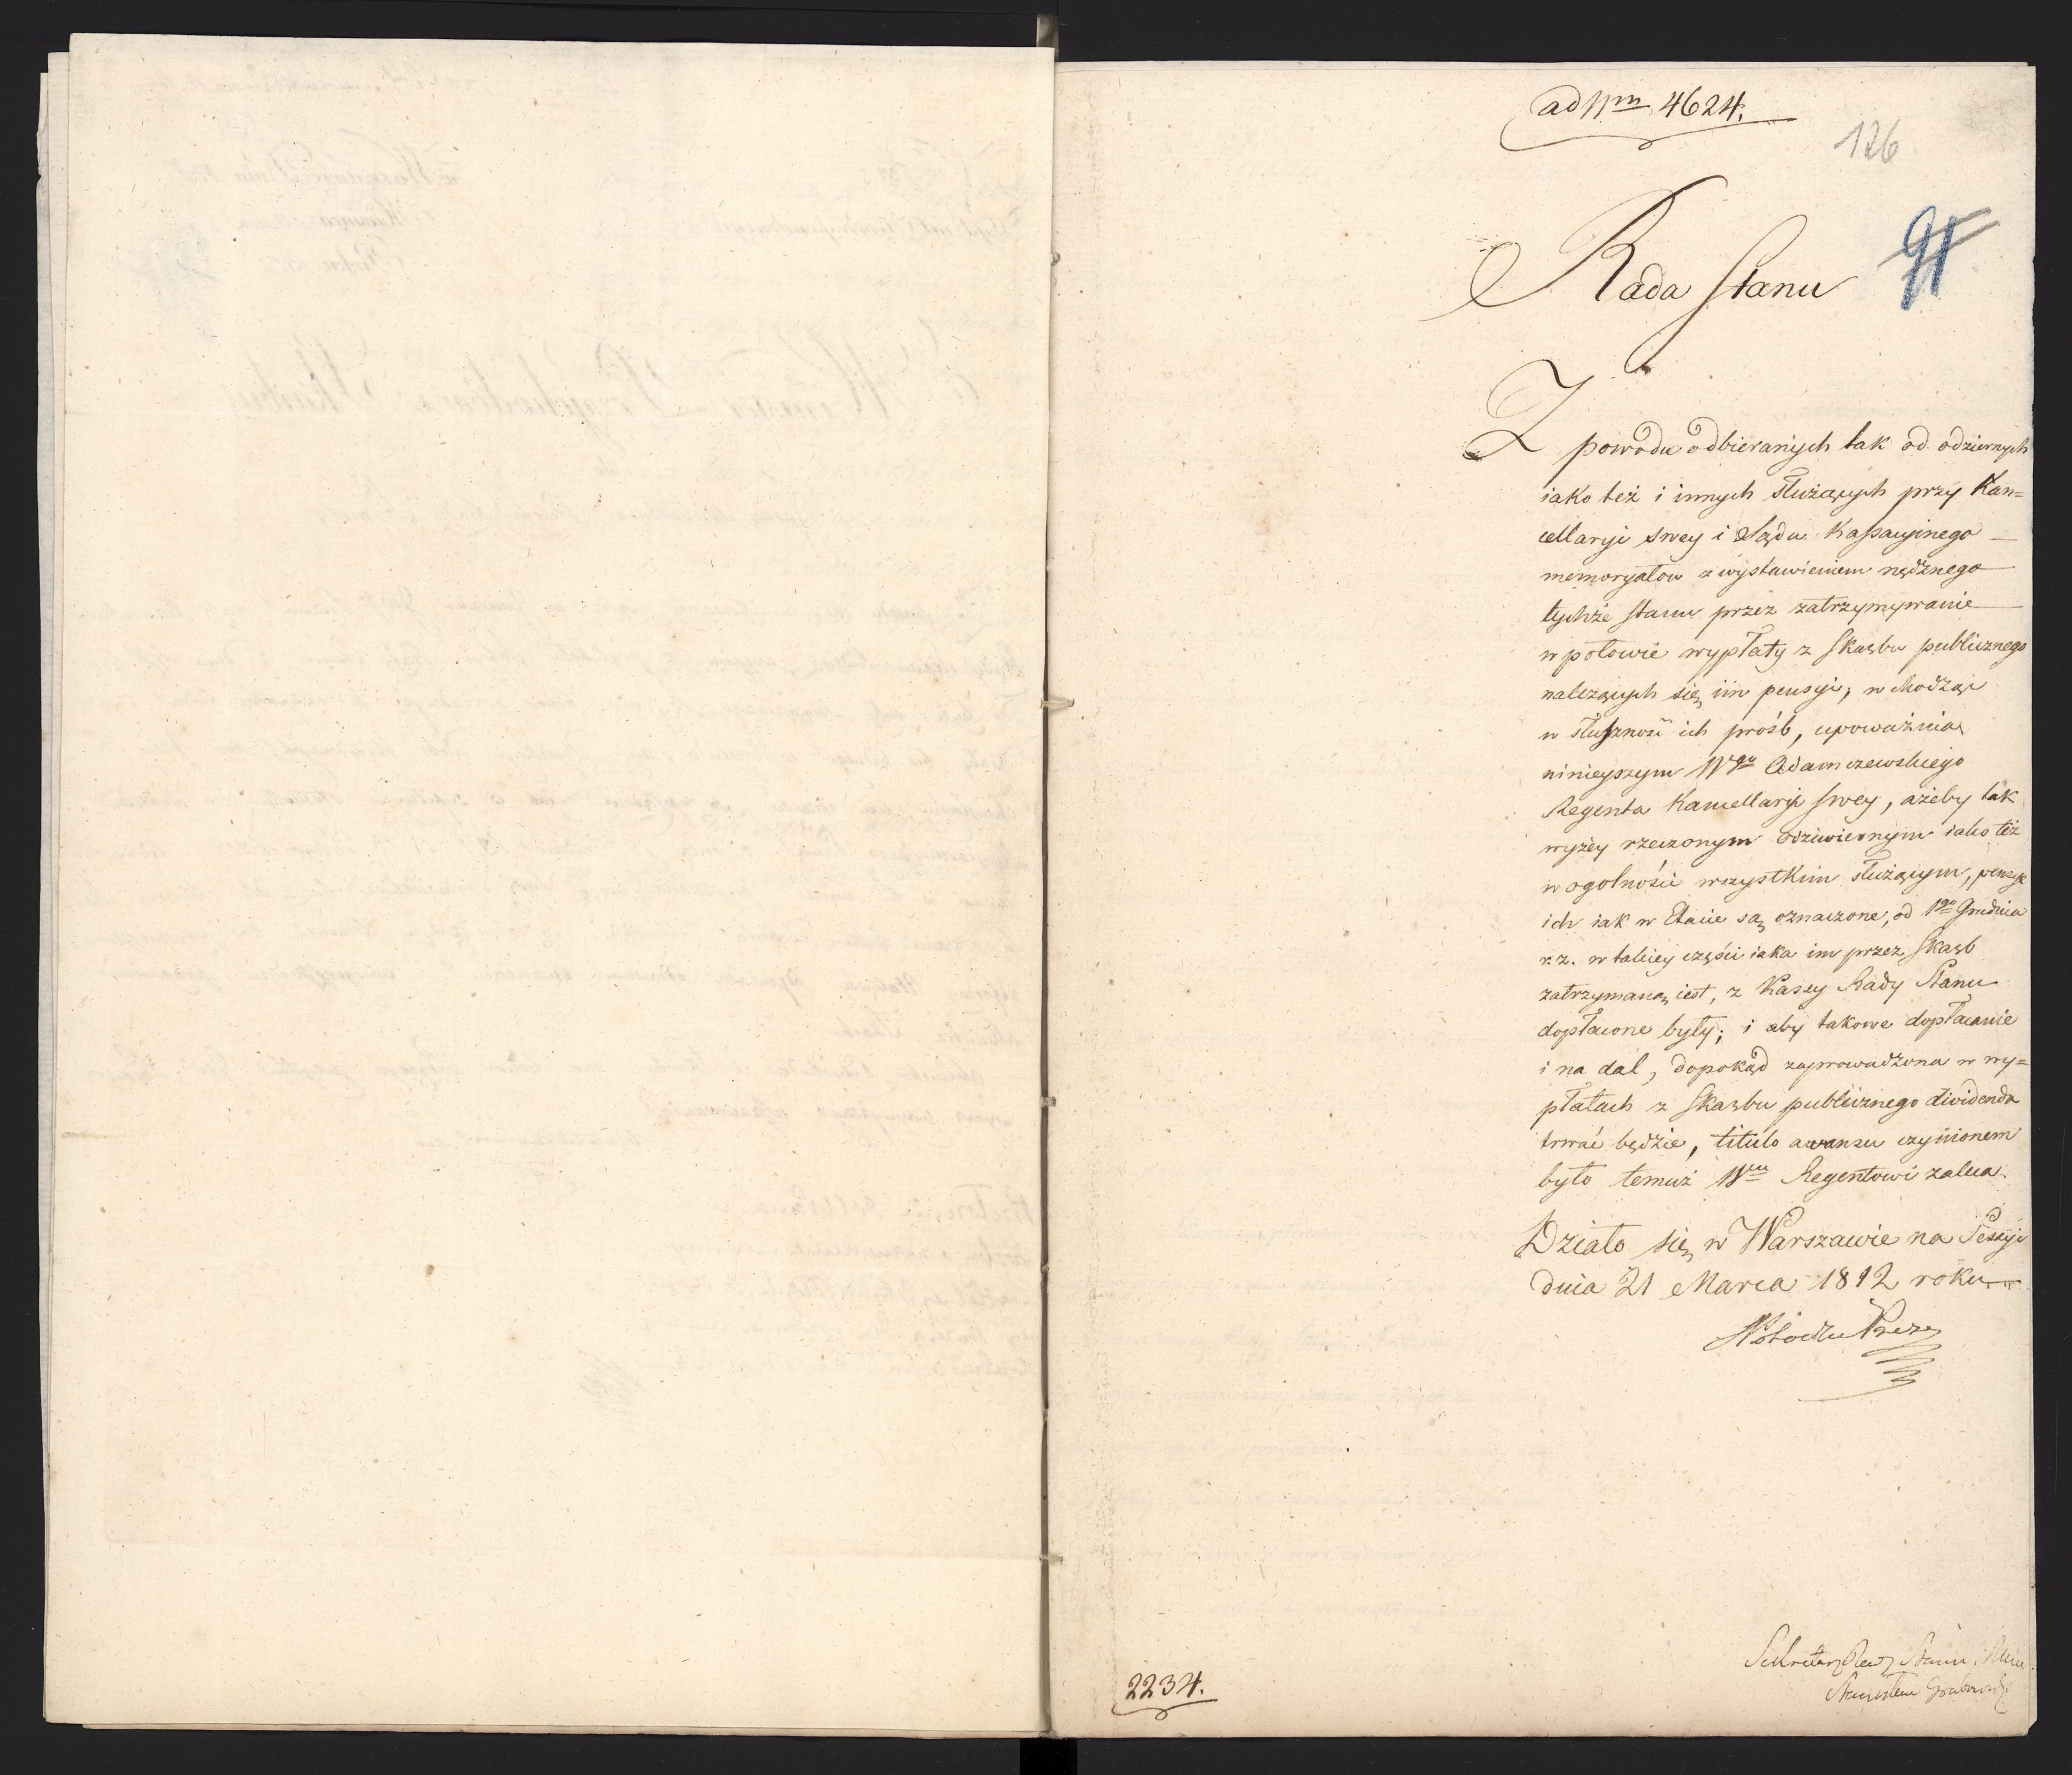 ad Nm 4624.
126
91
Rada Stanu
Z powodu odbieranych tak od odziernych
iako też i innych służących przy Kan=
cellaryi swey i Sądu Kassacyinego
memoryałow z wystawieniem nędznego
tychże stanu przez zatrzymywanie
w połowie wypłaty z Skarbu publicznego
należących się im pensyi, wchodząc
w słuszność ich prośb, upoważnia
ninieyszym Wgo Adamczewskiego
Regenta Kancellaryi swey, ażeby tak
wyżey rzeczonym odzwiernym iako też
w ogolności wszystkim służącym, pensye
ich iak w Etacie są oznaczone, od 1go Grudnia
r. z. w takiey części iaka im przez Skarb
zatrzymaną iest, z Kassy Rady Stanu
dopłacone były; i aby takowe dopłacanie
i na dal, dopokąd zaprowadzona w wy=
płatach z Skarbu publicznego dividenda
trwać będzie, titulo awansu czynionem
było temuż Wmu Regentowi zaleca.
Działo się w Warszawie na Sessyi
dnia 21 Marca 1812 roku
Sekretarz Rady Stanu
Stanisław Grabowski
2234.